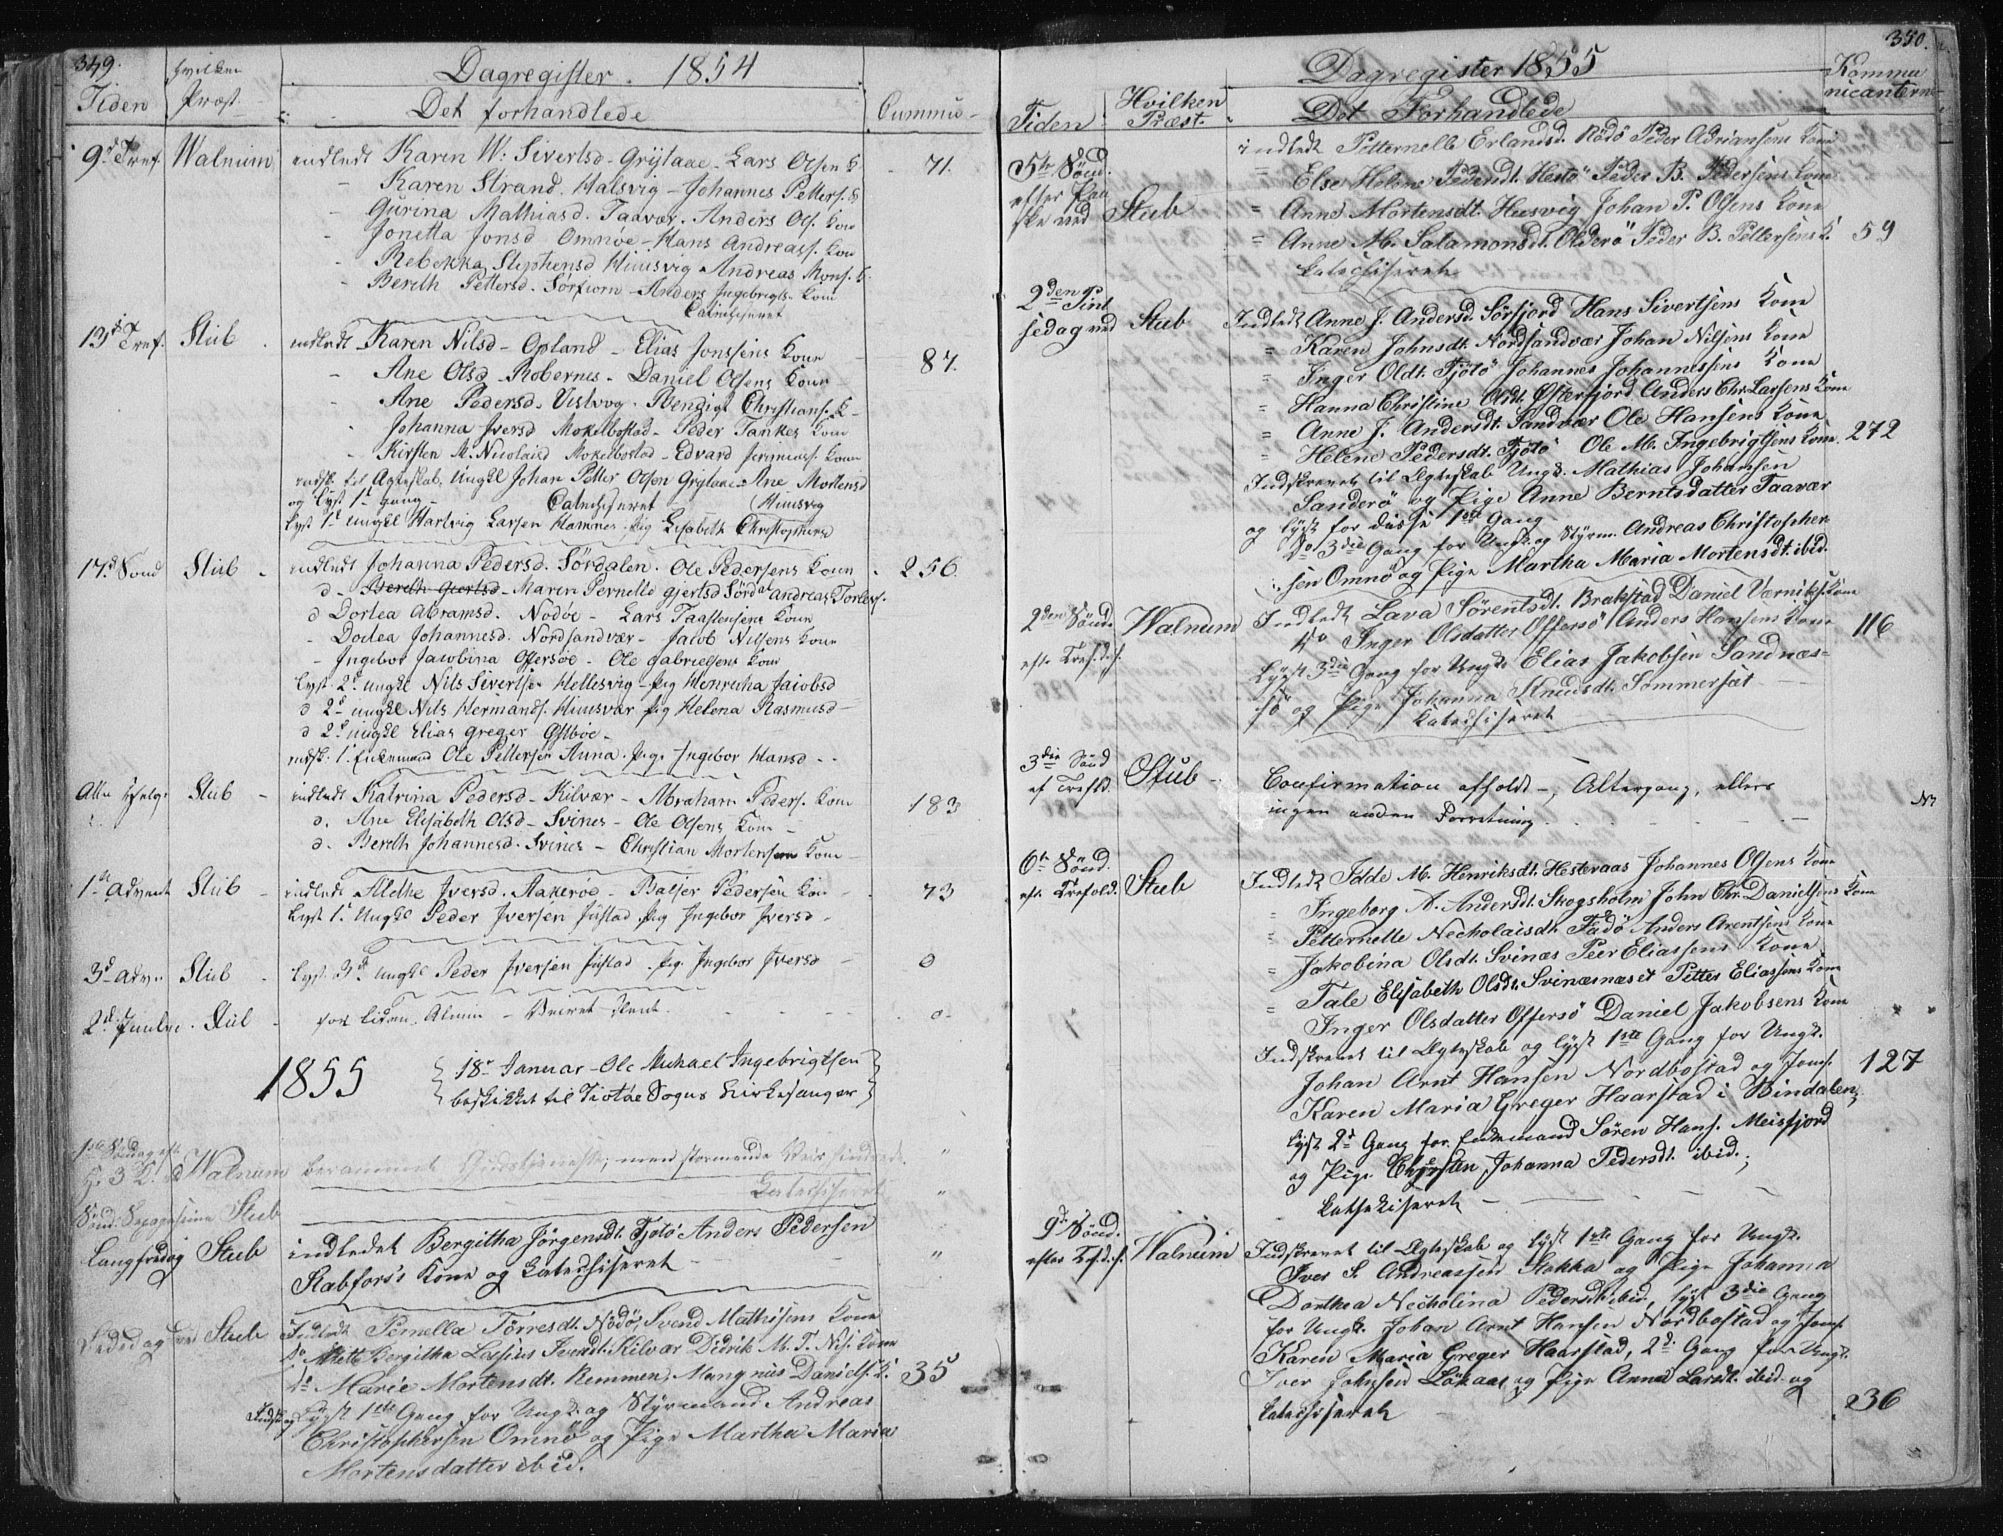 349.
hvilken
Dagregister. 1854
Tiden
Præst
Det forhandlede
Cummu-
9d Tref.
Walnum
indledt Karen W: Sivertsd - Grytaae - Lars Olsen K
71.
- Karen Strand. Halsvig - Johannes Petters. K
- Gurina Mathiasd. Taavær. Anders Ols. Kon
- Jonetta Jonsd Omnøe - Hans Andreass. Kon
- Rebekka Stephensd Huusvig Andreas Mons. K
- Bereth Pettersd. Sørfiorn - Anders Ingebrigts. Kone
Catechiseret
13d Tref.
Stub
indledt Karen Nilsd - Opland - Elias Jonssens Kone
87.
- Ane Olsd Robernes - Daniel Olsens Kone
- Ane Pedersd - Vistvog - Bendigt Christians. K-
- Johanna Iversd Mokelbostad - Peder Tankes Kone
- Kirsten M. Nicolaid Mokelbostad - Edvard Jeremias. Kone
indsk. til Agteskab. Ungkl Johan Petter Olsen Grytaae - Ane Mortensd
og lyst 1d gang - Catechiseret Huusvog
Lyst 1d Ungkl Hartvig Larsen Hamnes. pig Elisabeth Christophersd
17d Sond
Stub
indledt Johanna Pedersd. Sördalen. Ole Pedersens Konn
256.
d - Bereth Giertsd - Maren Pernelle gjertsd Sördal andreas Torless.
d Dortea Abramsd. Nodöe - Lars Taastensens Konn
- Dodea Johannesd. Nordsandvær - Jacob Nilsens Kone
- Ingebor Jacobina Offersöe - Ole Gabrielsens Kone
lyst. 2d ungkl Nils Sivertsen Hellesvig - pig Henricha Jacobsd
d 2d ungkl Nils Hermands. Huusvær pig Helena Rasmusd
d 2d ungkl Elias Greger Ostböe -
indsk. 1d Enkemand Ole Pettersen Aunn. pige Ingebor Hansd - .
Alle Helge
Stub
indledt Katrina Pedersd - Kilvær - Abraham Peders. Kone
183
d. Ane Elisabeth Olsd - Svines - Ole Olsens Kone
d. Bereth Johannesd. Svines - Christian Mortensens Kone
1ste Advent
Stub
indledt Alethe Iversd. Aakeröe - Baltser Pedersen Kon
73
lyst 1d Ungkl Peder Iversen Fustad. Pig Ingebor Iversd -
3d Adv.
Stub
lyst 3d ungkl Peder Iversen Fustad. Pig. Ingebor Iversd
0
2d Juule
Stub
for liden Almu - Veiret slemt.
0
1855
18de Januar - Ole Michael Ingebrigtsen
beskikket til Tiotöe Sogns Kirkesanger
Walnum
berammet Gudstjeneste; men stormende Veir hindrede.
"
Catechiseret
"
Sönd: Sexagesima
Stub
Langfredag
Stub
indledet Bergitha Jørgensdt. Tjøtö Anders Pedersen
"
Stabfors's Kone og Catechiseret
Stub
Indledt Pernella Torresdt. Nödö, Svend Mathisens Kone
do Mette Bergitha Lasius Ivendt. Kilvær Didrik M. T. Nis. Kone
do Marie Mortensdt. Remmen, Mangnus Daniels. K.
35
Indsk. og Lyst 1ste Gang for Ungk. og Styrmand Andreas
Christophersen Omnö og Pige Martha Maria
Mortensdatter ibid.
350.
Dagregister 1855
Kommu
nicanterne
Tiden
Hvilken
Præst.
Det Forhandlede
5te Sönd.
efter Paa
ske ved
Stub
indledt Petternelle Erlandsd. Rödö Peder Adriansens Kone
= Else Helene Pedersdt. Hestö Peder B. Pedersens Kone
= Anne Mortensdt. Husvig Johan P. Olsens Kone
= Anne M. Salamonsdt. Olderö Peder B. Pettersens K.
59
Catechiseret
2den Pint
sedag ved
Stub
Indledt Anne J. Andersd. Sörfjord Hans Sivertsens Kone
= Karen Johnsdt. Nordsandvær Johan Nilsens Kone
= Inger Oldt. Tjötö Johannes Johannessens Kone
= Hanna Christine Oldt. Österfjord Anders Chr. Larsens Kone
= Anne J. Andersdt. Sandvær Ole Hansens Kone
= Helene Pedersdt. Tjötö Ole M. Ingebrigtsens Kone.
272
Indskrevet til Ægteskab Ungk. Mathias Johansen
Sanderö og Pige Anne Berntsdatter Taavær
og lyst for disse 1ste Gang
Do 3die Gang for Ungk. og Styrm. Andreas Christopher-
sen Omnö og Pige Martha Maria Mortensdt. ibid.
2den Sönd.
eft. Tref.
Walnum
Indledt Lava Sörensdt. Brakstad Daniel Værniks. Kone
do Inger Olsdatter Offersö Anders Hansens Kone
116
Lyst 3die Gang for Ungk. Elias Jakobsen Sandnæs-
sö og Pige Johanna Knudsdt. Sommersæt
Katechiseret
3die Sönd
ef. Trefld.
Stub -
Confirmation afholdt -, Altergang, ellers
ingen anden Forretning.
6te Sönd.
eft. Trefold.
Stub
Indledt Idde M. Henriksdt. Hestevaas Johannes Olsens Kone
= Ingeborg A. Andersdt. Skogsholm John Chr. Danielsens Kone
= Petternelle Necholaisdt. Fadö Anders Arentsens Kone
= Jakobina Olsdt. Svinæs Peer Eliassens Kone
= Tale Elisabeth Olsdt. Svinæsnæset Petter Eliassens Kone
= Inger Olsdatter Offersö Daniel Jakobsens Kone
Indskrevet til Ægteskab og lyst 1ste Gang for Ungk.
Johan Arnt Hansen Nordbostad og Jomf.
127
Karen Maria Greger Haarstad i Bindalen;
lyst 2d Gang for Enkemand Sören Hans. Meisfjord
og Pige Chirsten Johanna Pedersdt. ibid.;
Kathekiseret -
9d Sönd.
efter Trf.
Walnum
Indskrevet til Ægteskab og lyst 1ste Gang for Ungk.
Iver S. Andreassen Stokka og Pige Johanna
Dorthea Necholina Pedersdt. ibid, lyst 3die Gang
for Ungk. Johan Arnt Hansen Nordbostad og Jomf.
Karen Maria Greger Haarstad, 2d Gang for Ungk.
Iver Johnsen Lökaas og Pige Anna Larsdt. ibid. og
Catechiseret
236